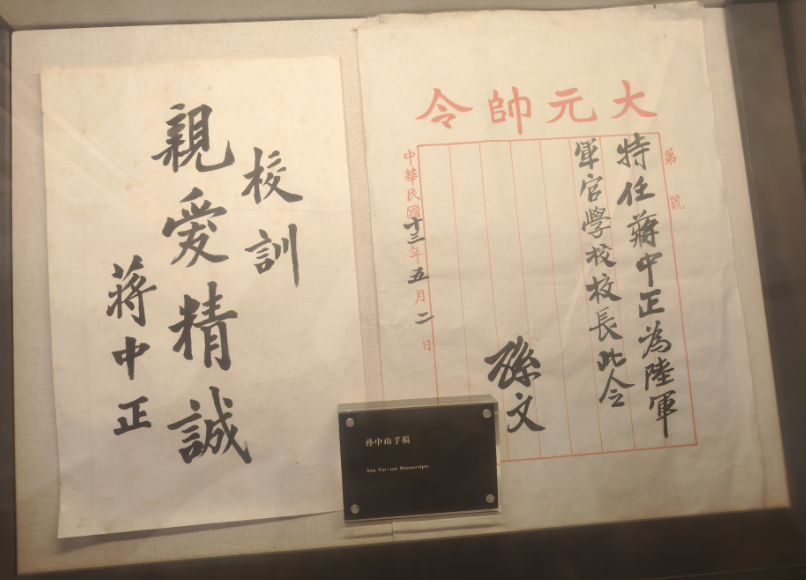 校訓
親愛精誠
蔣中正
大元帥令
第 號
特任蔣中正為陸軍
軍官學校校長此令
孫文
中華民國十三年五月二日
孙中山手稿
Sun Yat-sen Manuscripts